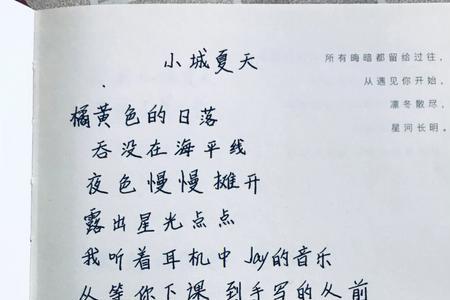 小城夏天
所有晦暗都留给过往，
从遇见你开始，
凛冬散尽，
星河长明。
橘黄色的日落
吞没在海平线
夜色慢慢摊开
露出星光点点
我听着耳机中 Jay的音乐
从等你下课 到手写的从前